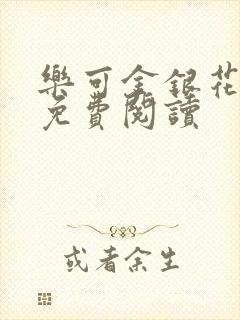 樂可金銀花
免費閱讀
或者余生